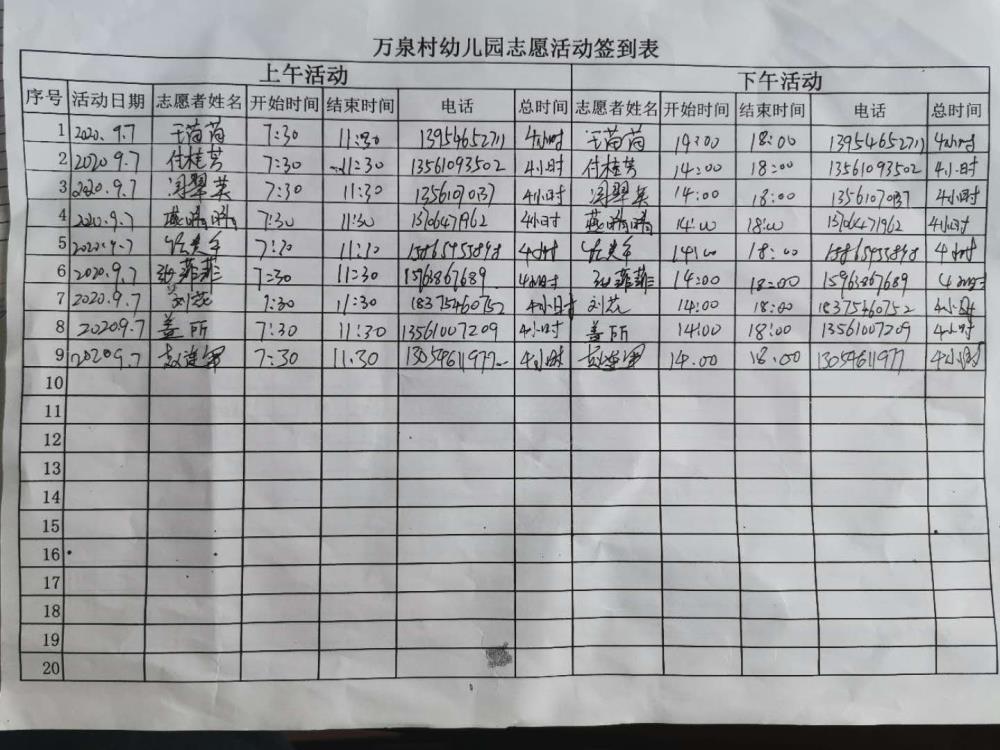 万泉村幼儿园志愿活动签到表
上午活动 下午活动
序号 活动日期 志愿者姓名 开始时间 结束时间 电话 总时间 志愿者姓名 开始时间 结束时间 电话 总时间
1 2020.9.7 王苗苗 7:30 11:30 13954652711 4小时 王苗苗 14:00 18:00 13954652711 4小时
2 2020 9.7 付桂芳 7:30 11:30 13561093502 4小时 付桂芳 14:00 18:00 13561093502 4小时
3 2020.9.7 翠英 7:30 11:30 4小时 翠英 14:00 18:00 4小时
4 2020.9.7 燕晴晴 7:30 11:30 15706471962 4小时 燕晴晴 14:00 18:00 15706471962 4小时
5 2020.9.7 4小时 14:00 18:00 4小时
6 2020.9.7 张菲菲 7:30 11:30 15963867689 4小时 张菲菲 14:00 18:00 15963867689 4小时
7 2020.9.7 刘花 7:30 11:30 18375460752 4小时 刘花 14:00 18:00 18375460752 4小时
8 20209.7 盖所 7:30 11:30 13561007209 4小时 盖所 14:00 18:00 13561007209 4小时
9 20209.7 赵建军 7:30 11:30 13054611977 4小时 赵建军 14:00 18:00 13054611977 4小时
10
11
12
13
14
15
16
17
18
19
20